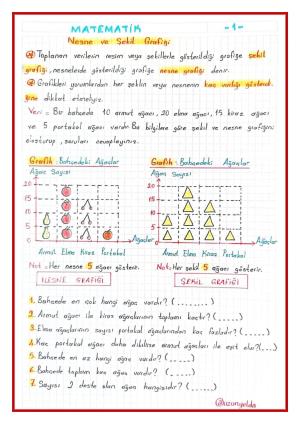 MATEMATİK
-1-
Nesne ve Şekil Grafiği
Toplanan verilerin resim veya şekillerle gösterildiği grafiğe şekil
grafiği, nesnelerle gösterildiği grafiğe nesne grafiği denir.
Grafikleri yorumlarken her şeklin veya nesnenin kaç varlığı gösterdi
ğine dikkat etmeliyiz.
Veri = Bir bahçede 10 armut ağacı, 20 elma ağacı, 15 kiraz ağacı
ve 5 portakal ağacı vardır. Bu bilgilere göre şekil ve nesne grafiğini
oluşturup, soruları cevaplayınız.
Grafik : Bahçedeki Ağaçlar
Ağaç Sayısı
20
15
10
5
0
Ağaçlar
Armut Elma Kiraz Portakal
Not = Her nesne 5 ağacı gösterir.
NESNE GRAFİĞİ
Grafik : Bahçedeki Ağaçlar
Ağaç Sayısı
20
15
10
5
0
Ağaçlar
Armut Elma Kiraz Portakal
Not = Her şekil 5 ağacı gösterir.
ŞEKİL GRAFİĞİ
1. Bahçede en çok hangi ağaç vardır? (........)
2. Armut ağacı ile kiraz ağaçlarının toplamı kaçtır? (........)
3. Elma ağaçlarının sayısı portakal ağaçlarından kaç fazladır? (......)
4. Kaç portakal ağacı daha dikilirse armut ağaçları ile eşit olur? (....)
5. Bahçede en az hangi ağaç vardır? (........)
6. Bahçede toplam kaç ağaç vardır? (........)
7. Sayısı 2 deste olan ağaç hangisidir? (........)